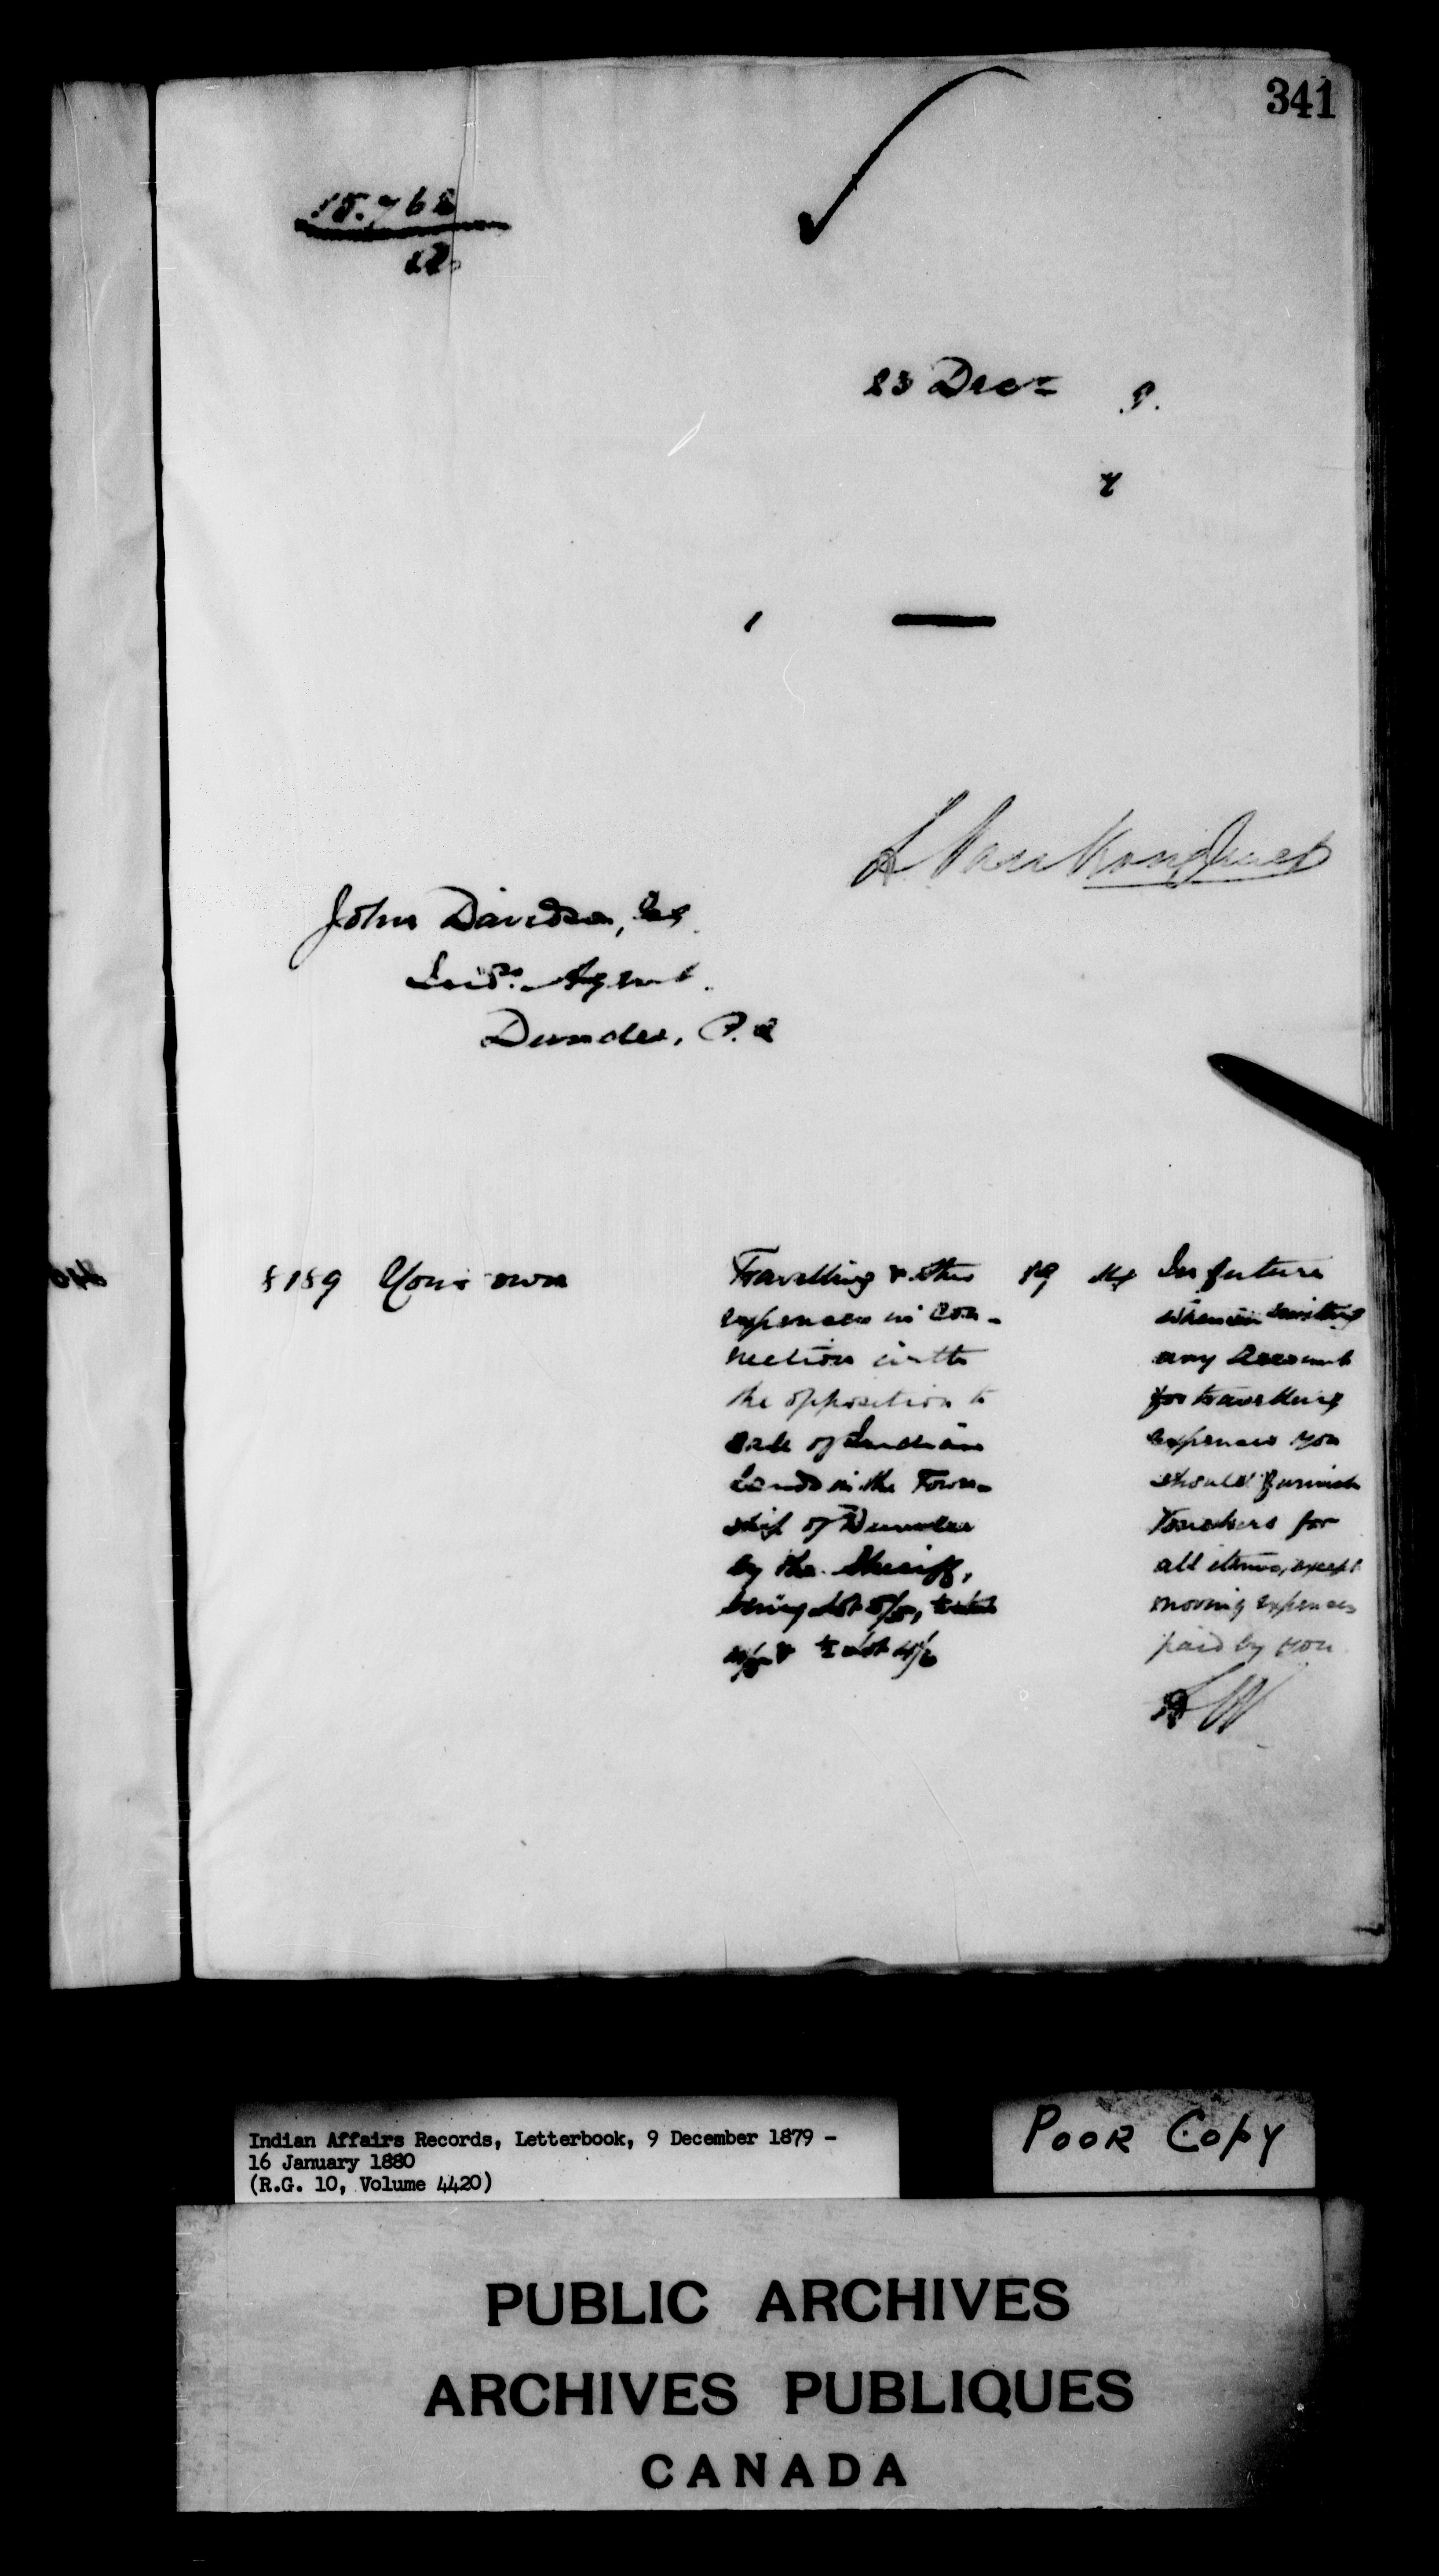 341
15.762
23 Decr 9.
1
L VanKoughnet
John Davidson, Esq.
Ind. Agent.
Dundee, P.Q
8189 Your own
Travelling & other
expenses in con-
nection with
the opposition to
sale of Indian
Lands in the Town-
ship of Dundee
by the Sheriff,
being Lot 5/5,
& ½ Lot
19
In future
when
any account
for travelling
expenses you
should furnish
Vouchers for
all items, except
moving expenses
paid by you
LVK
Indian Affairs Records, Letterbook, 9 December 1879 -
16 January 1880
(R.G. 10, Volume 4420)
POOR COPY
PUBLIC ARCHIVES
ARCHIVES PUBLIQUES
CANADA